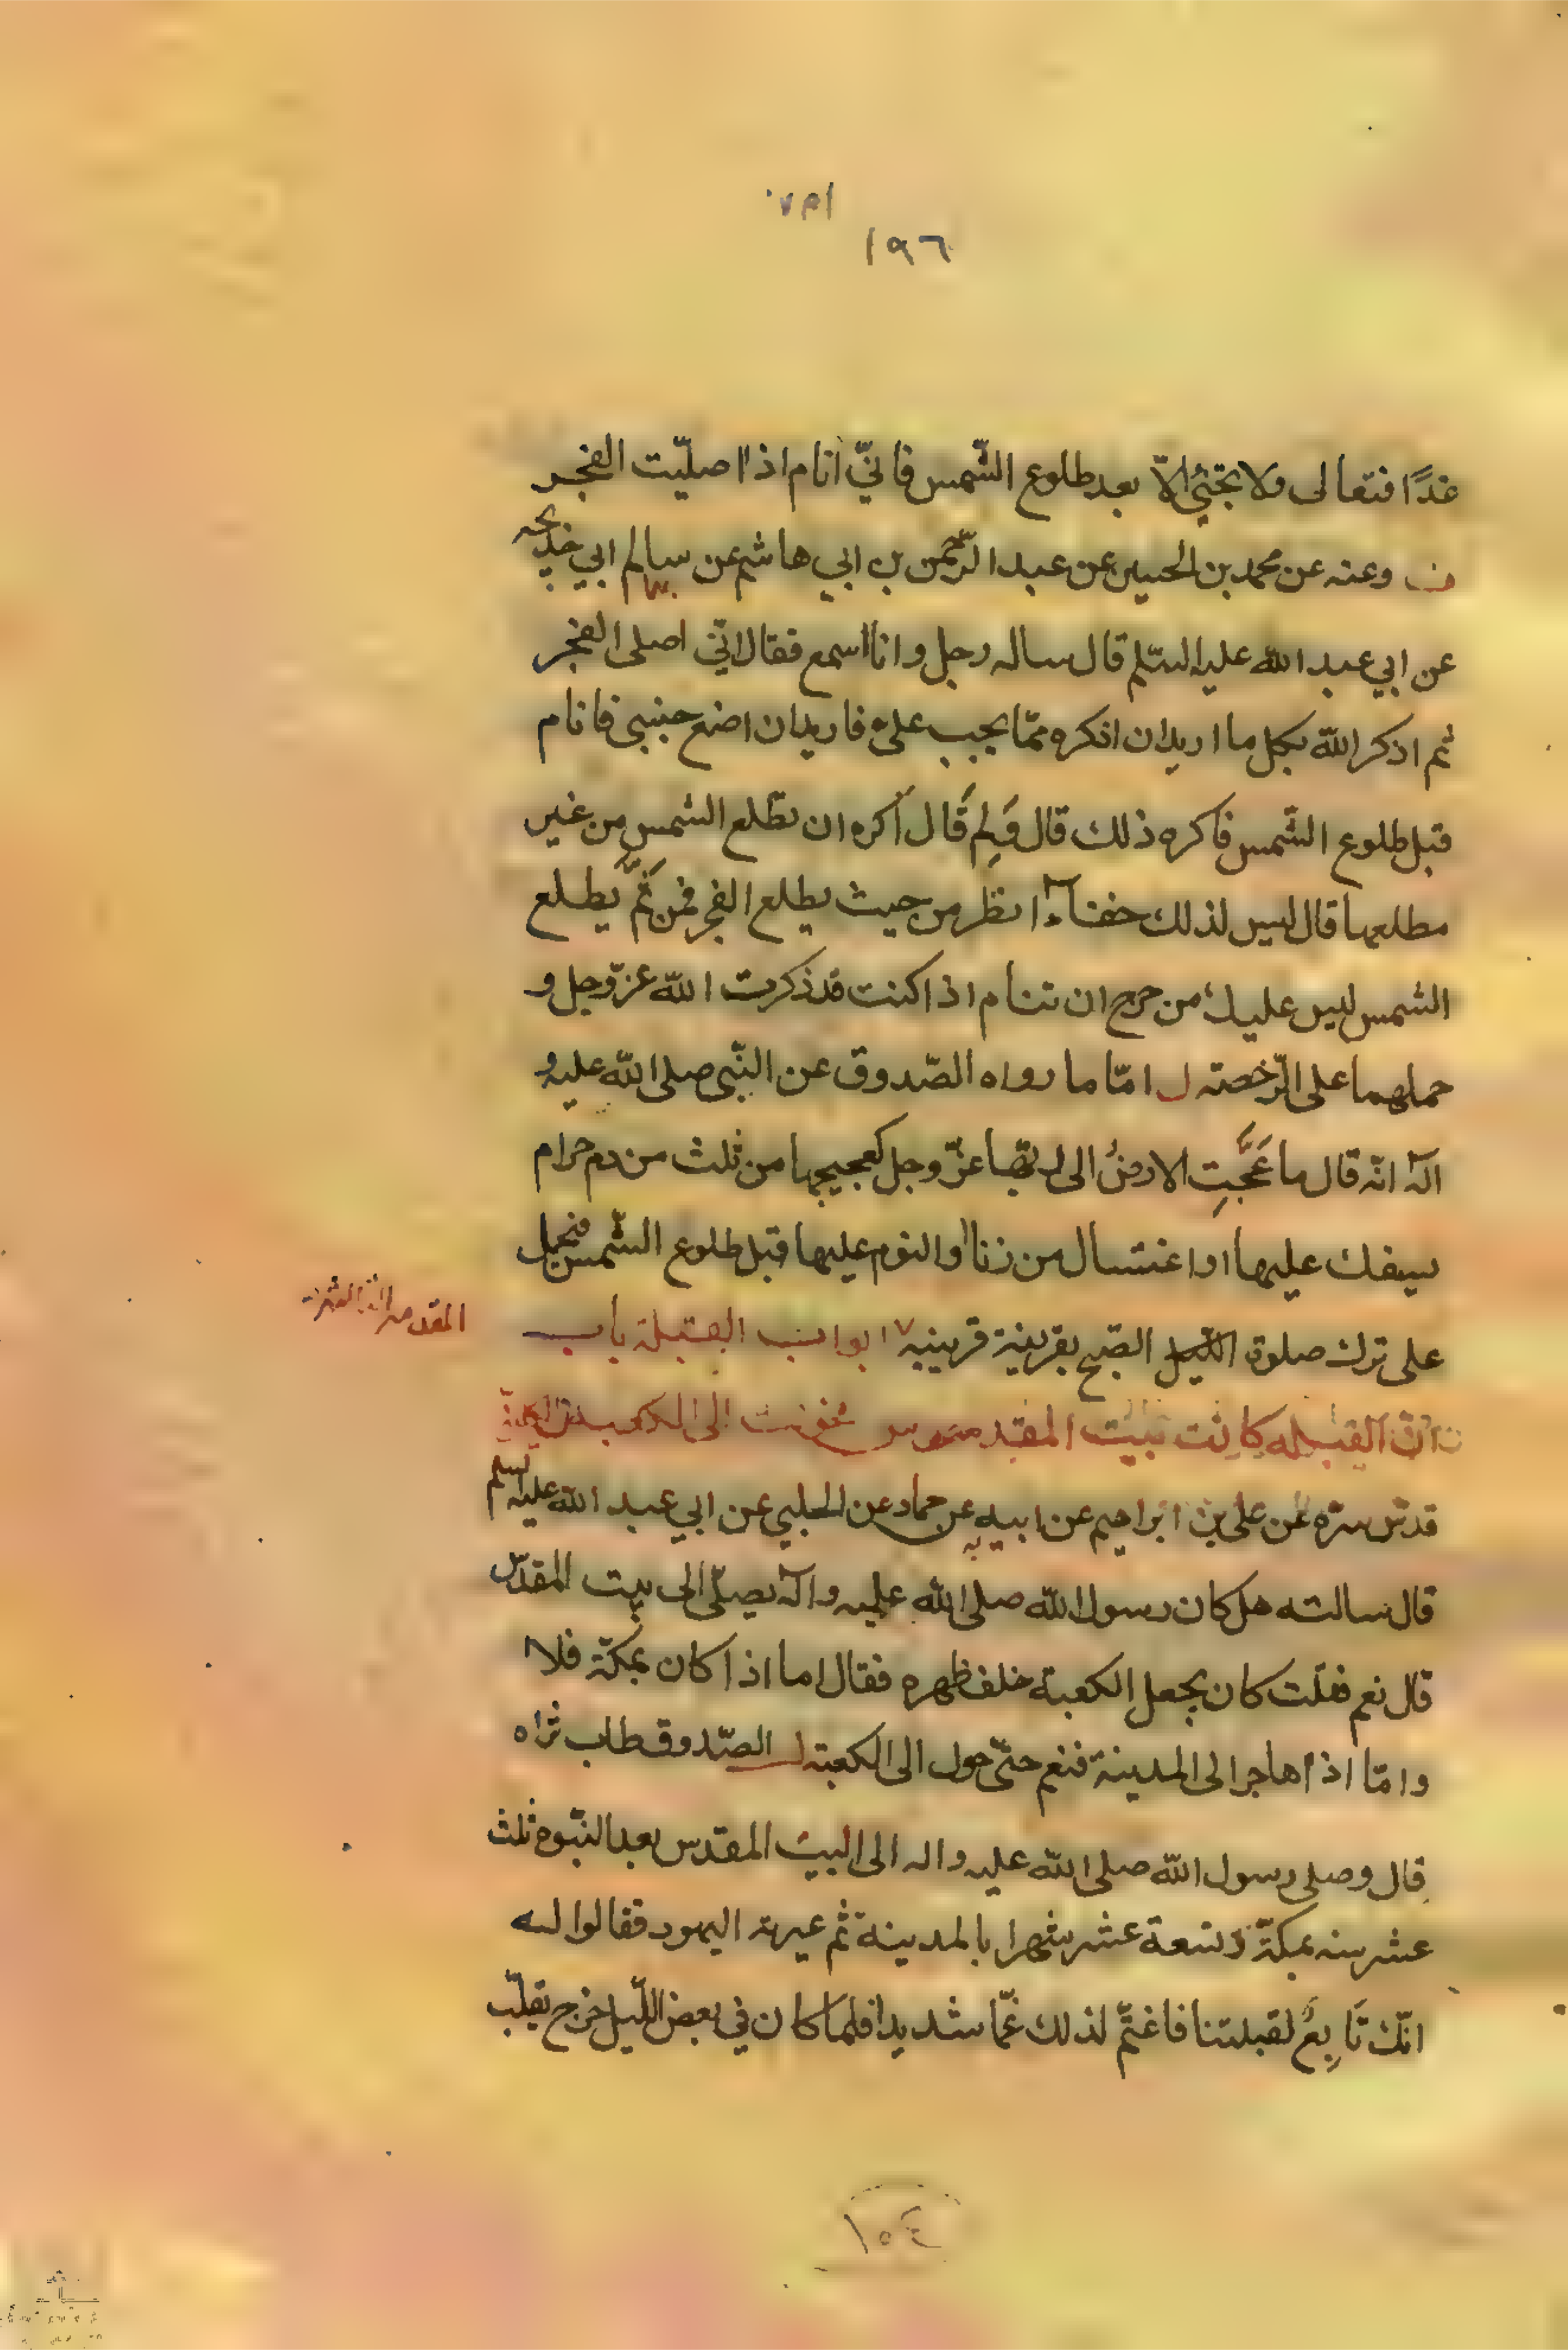 ١٩٦
غدًا فتعالى ولا تجئ إلاّ بعد طلوع الشّمس فانّي انام اذا صلّيت الفجر
وعنه عن محمد بن الحسين عن عبد الرّحمن بن ابي هاشم عن سالم ابي خديجه
عن ابي عبد الله عليه السّلم قال ساله رجل وانا اسمع فقال انّي اصلى الفجر
ثم اذكر الله بكل ما اريد ان اذكره ممّا يجب علىّ فاريد ان اضع جنبي فانام
قبل طلوع الشّمس فاكره ذلك قال وَلِمَ قَال اكره ان تطلع الشمس من غير
مطلعها قال ليس لذلك خفاء انظر من حيث يطلع الفجر فمن ثَمَّ يطلع
الشمس ليس عليك من حرج ان تنام اذا كنت قد ذكرت الله عزّ وجل و
حملهما على الرّخصة ل امّا ما رواه الصّدوق عن النّبي صلى الله عليه و
آله انّه قال ما عَجَّتِ الارضُ الى ربّها عزّ وجل كعجيجها من ثلث من دم حرام
يسفك عليها او اغتسال من زنا او النوم عليها قبل طلوع الشّمس فيحمل
على ترك صلوة الليل الصّبح بقرينة قرينيه ابواب القبلة باب
المقدمه
انّ القبله كانت بيت المقدس الى الكعبة
قدّس سرّه عن علي بن ابراهيم عن ابيه عن حماد عن الحلبي عن ابي عبد الله عليه السلم
قال سالته هل كان رسول الله صلى الله عليه وآله يصلّي الى بيت المقدّس
قال نعم فقلت كان يجعل الكعبة خلف ظهره فقال اما اذا كان بمكة فلا
وامّا اذا هاجر الى المدينة فنعم حتّى حول الى الكعبة ل الصّدوق طاب ثراه
قال وصلى رسول الله صلى الله عليه واله الى البيت المقدس بعد النّبوة ثلث
عشر سنه بمكة وتسعة عشر شهرا بالمدينة ثم عيرته اليهود فقالوا له
انّك تَابِعٌ لقبلتنا فاغتمّ لذلك غمّا شديدا فلما كان في بعض اللّيل خرج يقلّب
١٥٤